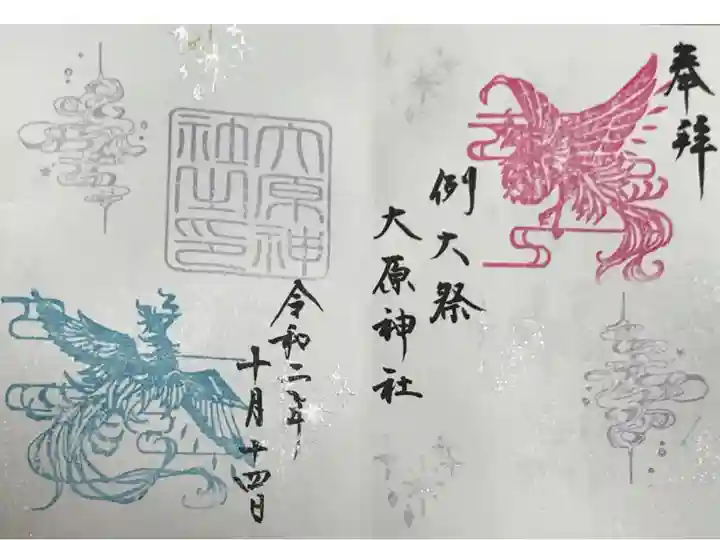 奉拝
例大祭
大原神社
大原神
社之印
令和二年
十月十四日